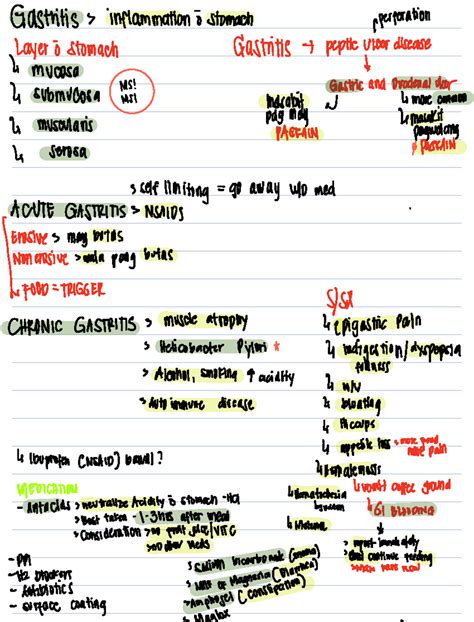 Gastritis > inflammation ō stomach
perforation
Layer ō stomach
Gastritis → peptic ulcer disease
↳ mucosa
↳ submucosa
MS!
MS!
↳ muscularis
↳ serosa
Gastric and Duodenal
masakit
pag may
PAGKAIN
↳ more common
↳ masakit
pagwalang
PAGKAIN
> self limiting = go away w/o med
ACUTE GASTRITIS > NSAIDS
Erosive > may butas
Non erosive > wala pang butas
↳ FOOD = TRIGGER
CHRONIC GASTRITIS > muscle atrophy
> Helicobacter Pylori *
> Alcohol, smoking ↑ acidity
> Autoimmune disease
S/SX
↳ Epigastric Pain
↳ Indigestion / dyspepsia
fullness
↳ n/v
↳ bloating
↳ Hiccups
↳ appetite loss > more food
more pain
↳ Hematemesis
↳ Ibuprofen (NSAID) bawal?
↳ Hematochezia
↳ Melena
↳ vomit coffee ground
↳ GI BLEEDING
> report immediately
MEDICATION
- Antacids > neutralize Acidity ō stomach - HCl
> Best taken - 1-3 hrs after meal
> Consideration > no fruit juice / VIT C
> no other meds
- PPI
- H2 blockers
- Antibiotics
- surface coating
> Sodium bicarbonate
> Milk of Magnesia (Diarrhea)
> Amphojel (Constipation)
> Maalox